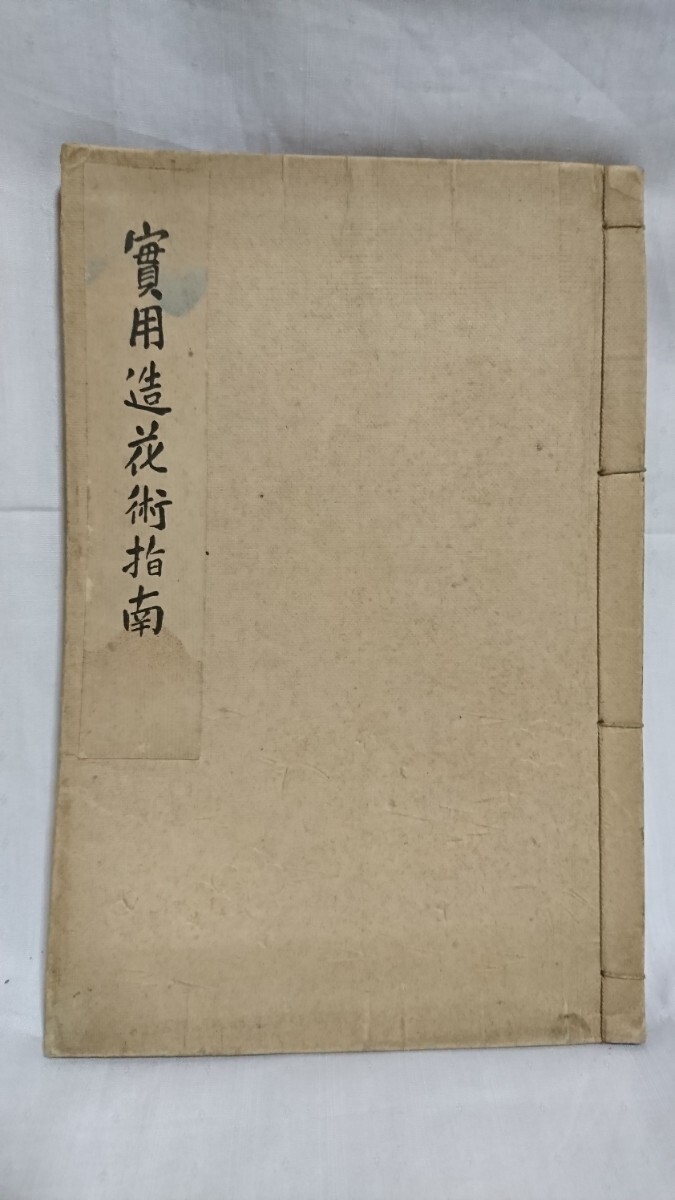 實用造花術指南